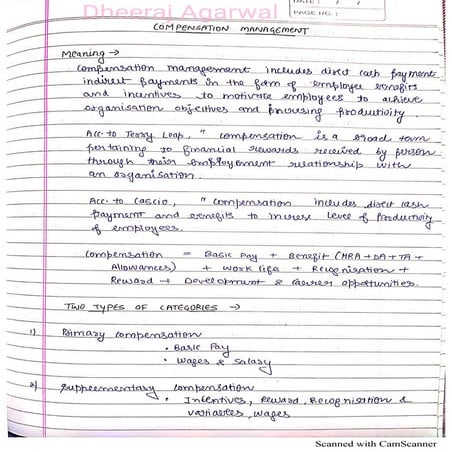 Dheeraj Agarwal
DATE: / /
PAGE NO.:
COMPENSATION MANAGEMENT
Meaning →
compensation management includes direct cash payments
indirect payments in the form of employee benefits
and incentives to motivate employees to achieve
organisation objectives and incresing productivity.
Acc. to Terry Leap, " compensation is a broad term
pertaining to financial rewards received by person
through their employement relationship with
an organisation.
Acc. to Cascio, " compensation includes direct cash
payment and benefits to increse level of productivity
of employees.
compensation = Basic Pay + Benefit (HRA + DA + TA +
Allowances) + work life + Recognisation +
Reward + Development & career opportunities.
TWO TYPES OF CATEGORIES →
1) Primary compensation
• Basic Pay
• Wages & Salary
2) Supplementary compensation
• Incentives, Reward, Recognisation &
variables, wages
Scanned with CamScanner